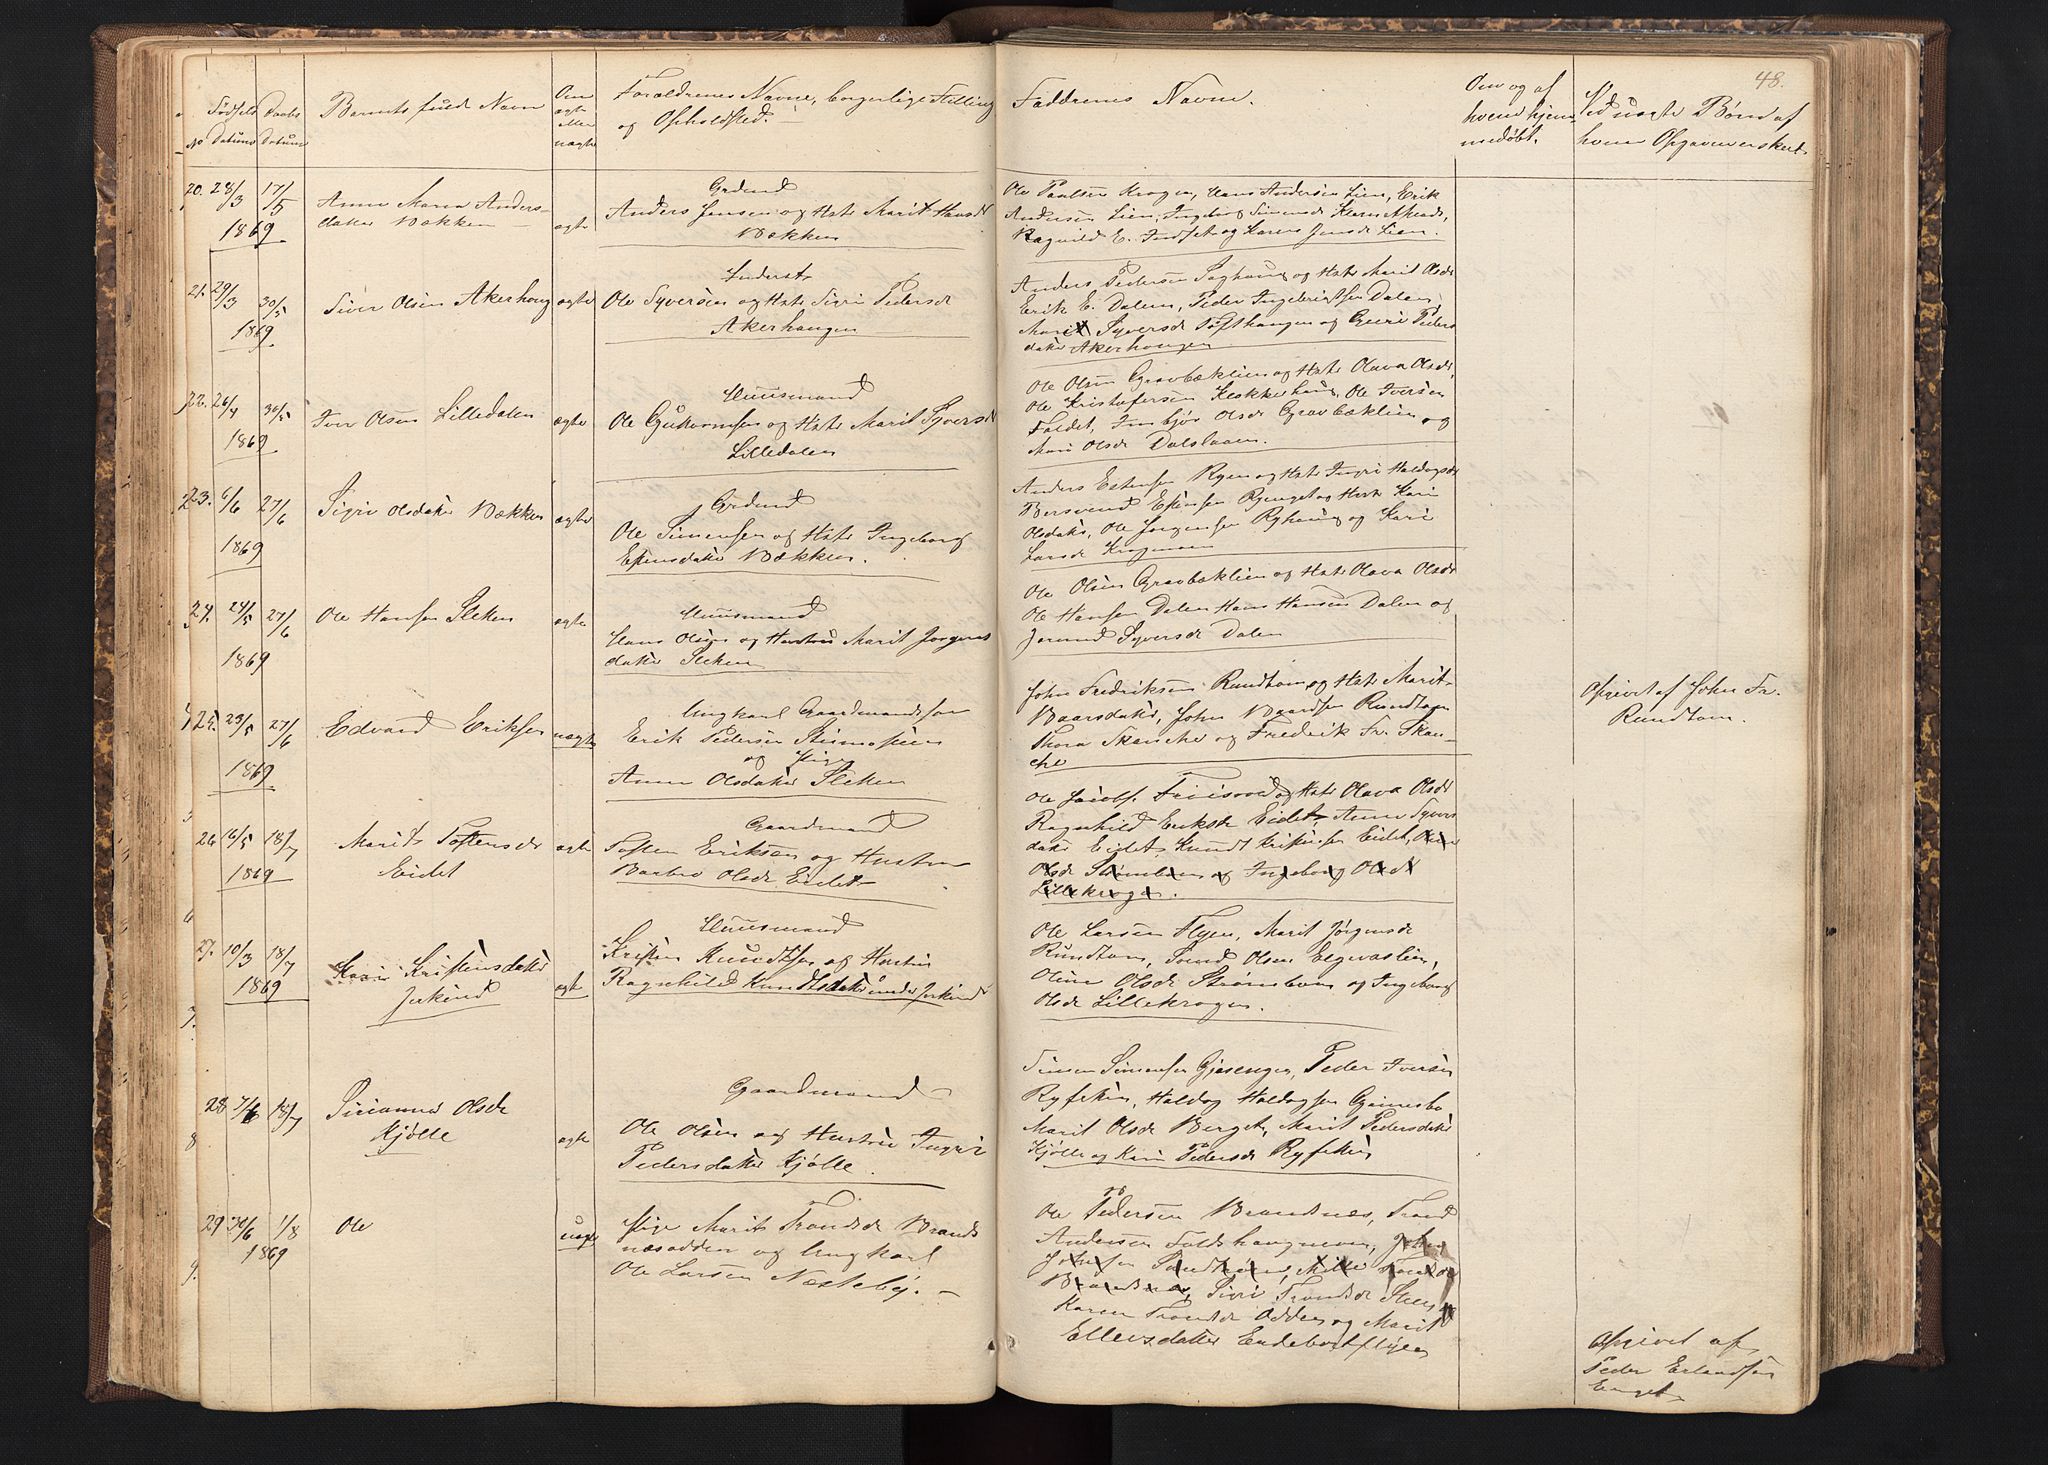 48.
No
Fødsels
Datum
Daabs
Datum
Barnets fulde Navn
Om
ægte
eller
uægte
Forældrenes Navne, borgerlige Stilling
og Opholdsted.
Faddrenes Navne.
Om og af
hvem hjem-
medøbt.
Ved uægte Børn af
hvem Opgaven er skeet.
20. 28/3 17/5
1869
Anne Maria Anders-
datter Bækken
ægte
Grdmd
Anders Jensen og Hstr Marit Hansd
Bækken
Ole Paulsen Krogen, Hans Andersen Lien, Erik
Andersen Lien, Ingeborg Simensd
Ragnild E. Indset og Karen Jensd Lien.
21. 29/3 30/5
1869
Siver Olsen Akerhoug
ægte
Inderst
Ole Syversen og Hstr Sigri Pedersd
Akerhaugen
Anders Pedersen Soghoug og Hstr Marit Olsd
Erik E. Dalen, Peder Ingebrigtsen Dalen,
Marit Syversd Tofthaugen og Guri Peders
datter Akerhougen
22. 26/4 30/5
1869
Iver Olsen Lilledalen
ægte
Huusmand
Ole Guttormsen og Hstr Marit Syversd
Lilledalen
Ole Olsen Gravbæklien og Hstr Olava Olsd,
Ole Kristofersen Klokkerhaug, Ole Iversen
Faldet, Imbjør Olsd Gravbæklien og
Mari Olsd Dalslaaen.
23. 6/6 27/6
1869
Sigri Olsdatter Bækken
ægte
Grdmd
Ole Simensen og Hstr Ingeborg
Estensdatter Bækken.
Anders Estensen Ryen og Hstr Ingri Haldogsd
Bersvend Estensen Ryenget og Hstr Kari
Olsdatter, Ole Jorgensen Ryhaug og Kari
Larsd Krogmoen
24. 24/5 27/6
1869
Ole Hansen Sletten
ægte
Huusmand
Hans Olsen og Hustru Marit Jorgens
datter Sletten
Ole Olsen Gravbæklien og Hstr Olava Olsd
Ole Hansen Dalen Hans Hansen Dalen og
Jorund Syversd Dalen
25. 23/5 27/6
1869
Edvard Eriksen
uægte
Ungkarl Gaardmandssøn
Erik Pedersen Stismoseien
og Pige
Anne Olsdatter Sletten
John Fredriksen Rundtom og Hstr Marit
Baarsdatter, John Baardsen Rundtom
Thora Skancke og Fredrik Fr. Skan-
cke
Opgivet af John Fr.
Rundtom.
26 16/5 18/7
1869
Marit Tostensd
Eidet
ægte
Gaardmand
Tosten Eriksen og Hustru
Barbro Olsd Eidet
Ole Jacobs. Friisvold og Hstr Olava Olsd
Ragnhild Eriksd Eidet, Anne Syvers
datter Eidet, Knudt Kristensen Eidet, Oline
Olsd Strømboen og Ingeborg Olsd
Lillekrogen.
27. 10/3 18/7
1869
Kari Kristensdatter
Jerkind
ægte
Huusmand
Kristen Knudtsen og Hustru
Ragnhild Knudtsdatter under Jerkind
Ole Larsen Flyen, Marit Jørgensd
Rundtom, Svend Olsen Elgvaslien,
Oline Olsd Strømboen og Ingeborg
Olsd Lillekrogen.
28 7/6 18/7
Sirianna Olsd
Kjølle
ægte
Gaardmand
Ole Olsen og Hustru Ingri
Pedersdatter Kjølle.
Simen Simensen Gjesengen, Peder Iversen
Ryfetten, Haldog Haldogsen Grimesbo
Marit Olsd Berget, Marit Pedersdatter
Kjølle og Kari Pedersd Ryfetten
29 30/6 1/8
1869
Ole
uægte
Pige Marit Trondsd Brands
næsodden og Ungkarl
Ole Larsen Næsteby.
Ole Pedersen Brandnæs, Trond
Andersen Foldshaugmoen, John
Johnsen Sandtrøen, Mille Trondsd
Brandnæs, Sigri Trondsd Steen
Karen Trondsd Odden og Marit
Ellevsdatter Endebostflyen
Opgivet af
Peder Erlandsen
Enget